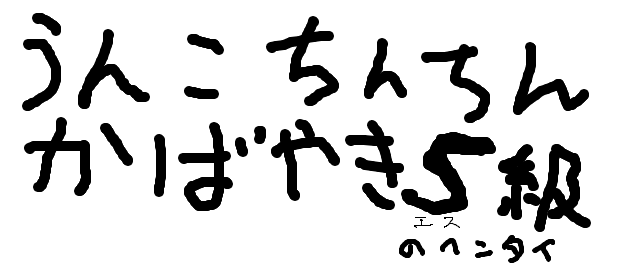 うんこちんちん
かばやきS級
エス
のヘンタイ